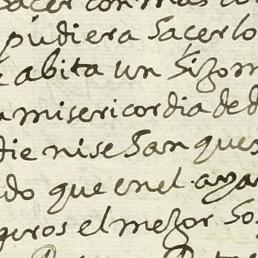 pudiera haçerlo
abita un
misericordia de d
die ni se han ques
do que en el ayar
geros el mejor so